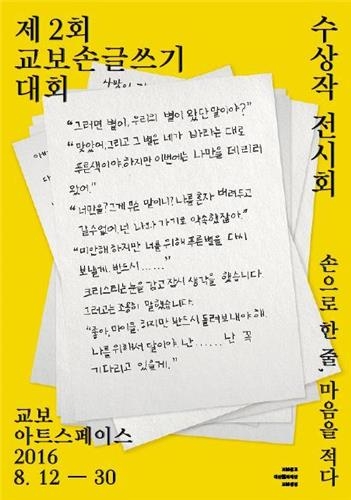 제 2회
교보손글쓰기
대회
수상작 전시회
손으로 한 줄, 마음을 적다
“그러면 별이, 우리의 별이 왔단 말이야?”
“맞았어, 그리고 그 별은 네가 바라는 대로
푸른색이야. 하지만 이번에는 나만을 데리러
왔어.”
“너만을? 그게 무슨 말이니? 나를 혼자 버려두고
갈 수 없어 넌 나와 가기로 약속했잖아.”
“미안해 하지만 너를 위해 푸른 별을 다시
보낼게. 반드시……”
크리스티는 눈을 감고 잠시 생각을 했습니다.
그러고는 조용히 말했습니다.
“좋아, 마이클. 하지만 반드시 돌려보내야 해.
나를 위해서 말이야. 난…… 난 꼭
기다리고 있을게.”
교보
아트스페이스
2016
8. 12 — 30
교보문고
대산문화재단
교보생명